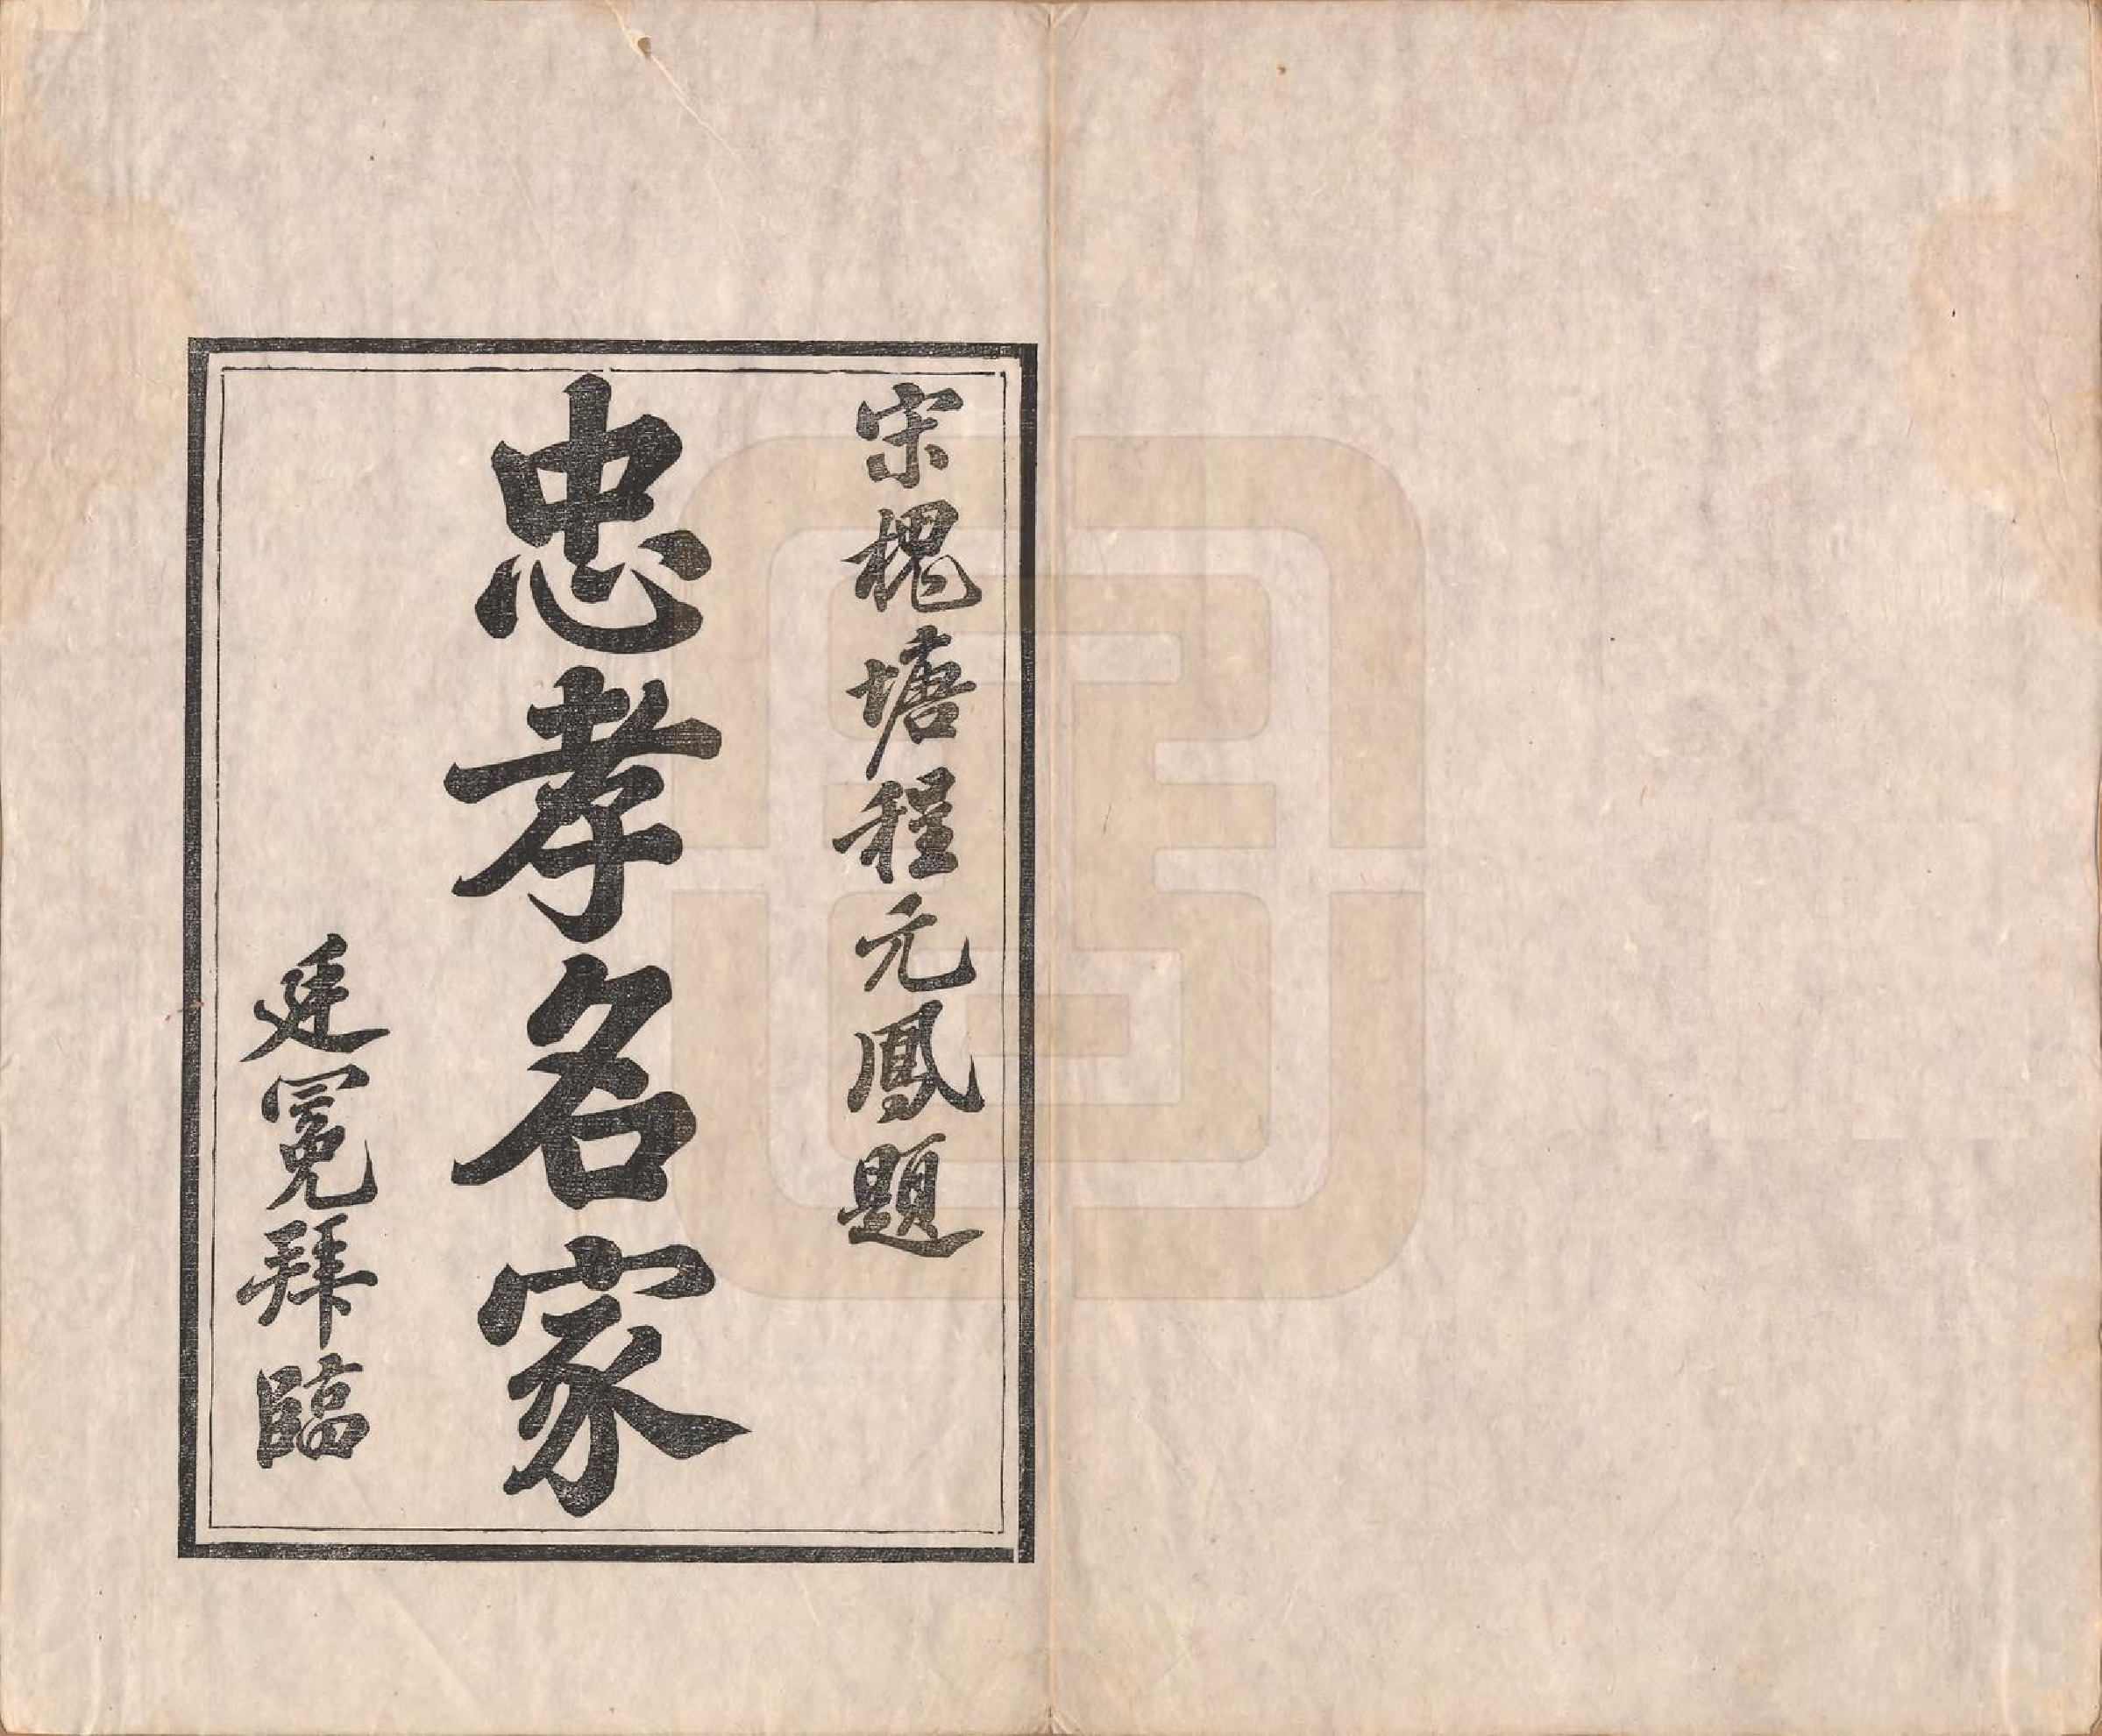 宋槐塘程元鳳題
忠孝名家
廷冕拜臨